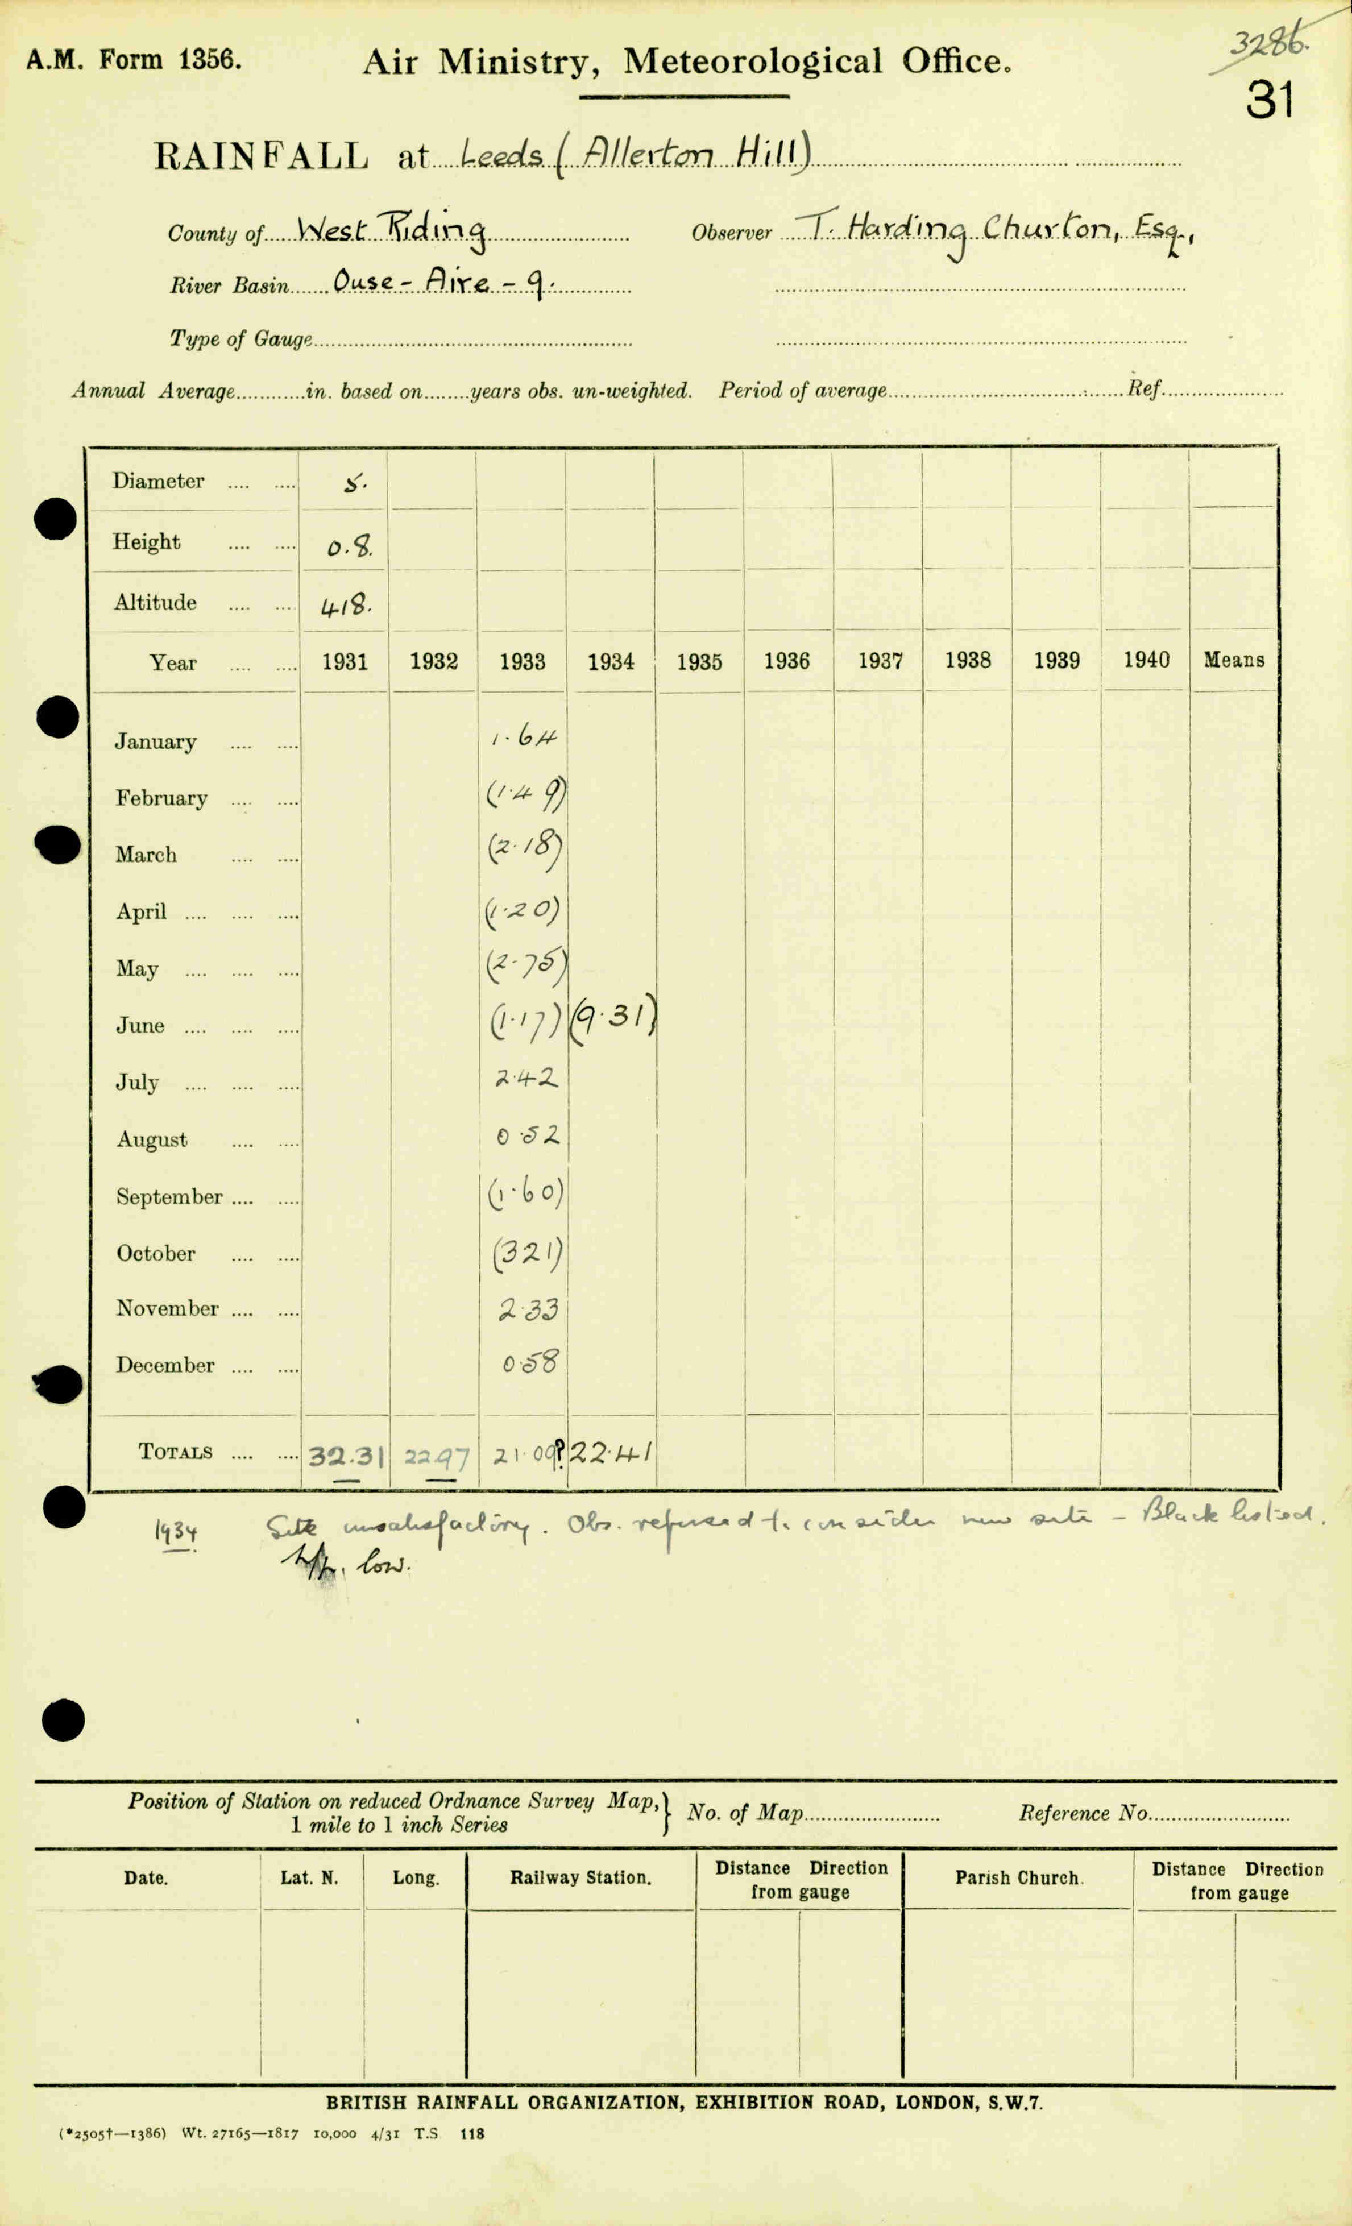 3286.
A.M. Form 1356. Air Ministry, Meteorological Office.
31
RAINFALL at Leeds (Allerton Hill)
County of West Riding Observer T. Harding Churton, Esq.,
River Basin Ouse - Aire - 9.
Type of Gauge
Annual Average in. based on years obs. un-weighted. Period of average Ref.
Diameter 5.
Height 0.8.
Altitude 418.
Year 1931 1932 1933 1934 1935 1936 1937 1938 1939 1940 Means
January 1.64
February (1.49)
March (2.18)
April (1.20)
May (2.75)
June (1.17) (9.31)
July 2.42
August 0.52
September (1.60)
October (321)
November 2.33
December 0.58
TOTALS 32.31 22.97 21.09? 22.41
1934 Site unsatisfactory. Obs. refused to consider new site - Black listed.
low.
Position of Station on reduced Ordnance Survey Map, } No. of Map Reference No.
1 mile to 1 inch Series
Date. Lat. N. Long. Railway Station. Distance Direction from gauge Parish Church. Distance Direction from gauge
BRITISH RAINFALL ORGANIZATION, EXHIBITION ROAD, LONDON, S.W.7.
(*2505†—1386) Wt. 27165—1817 10,000 4/31 T.S 118